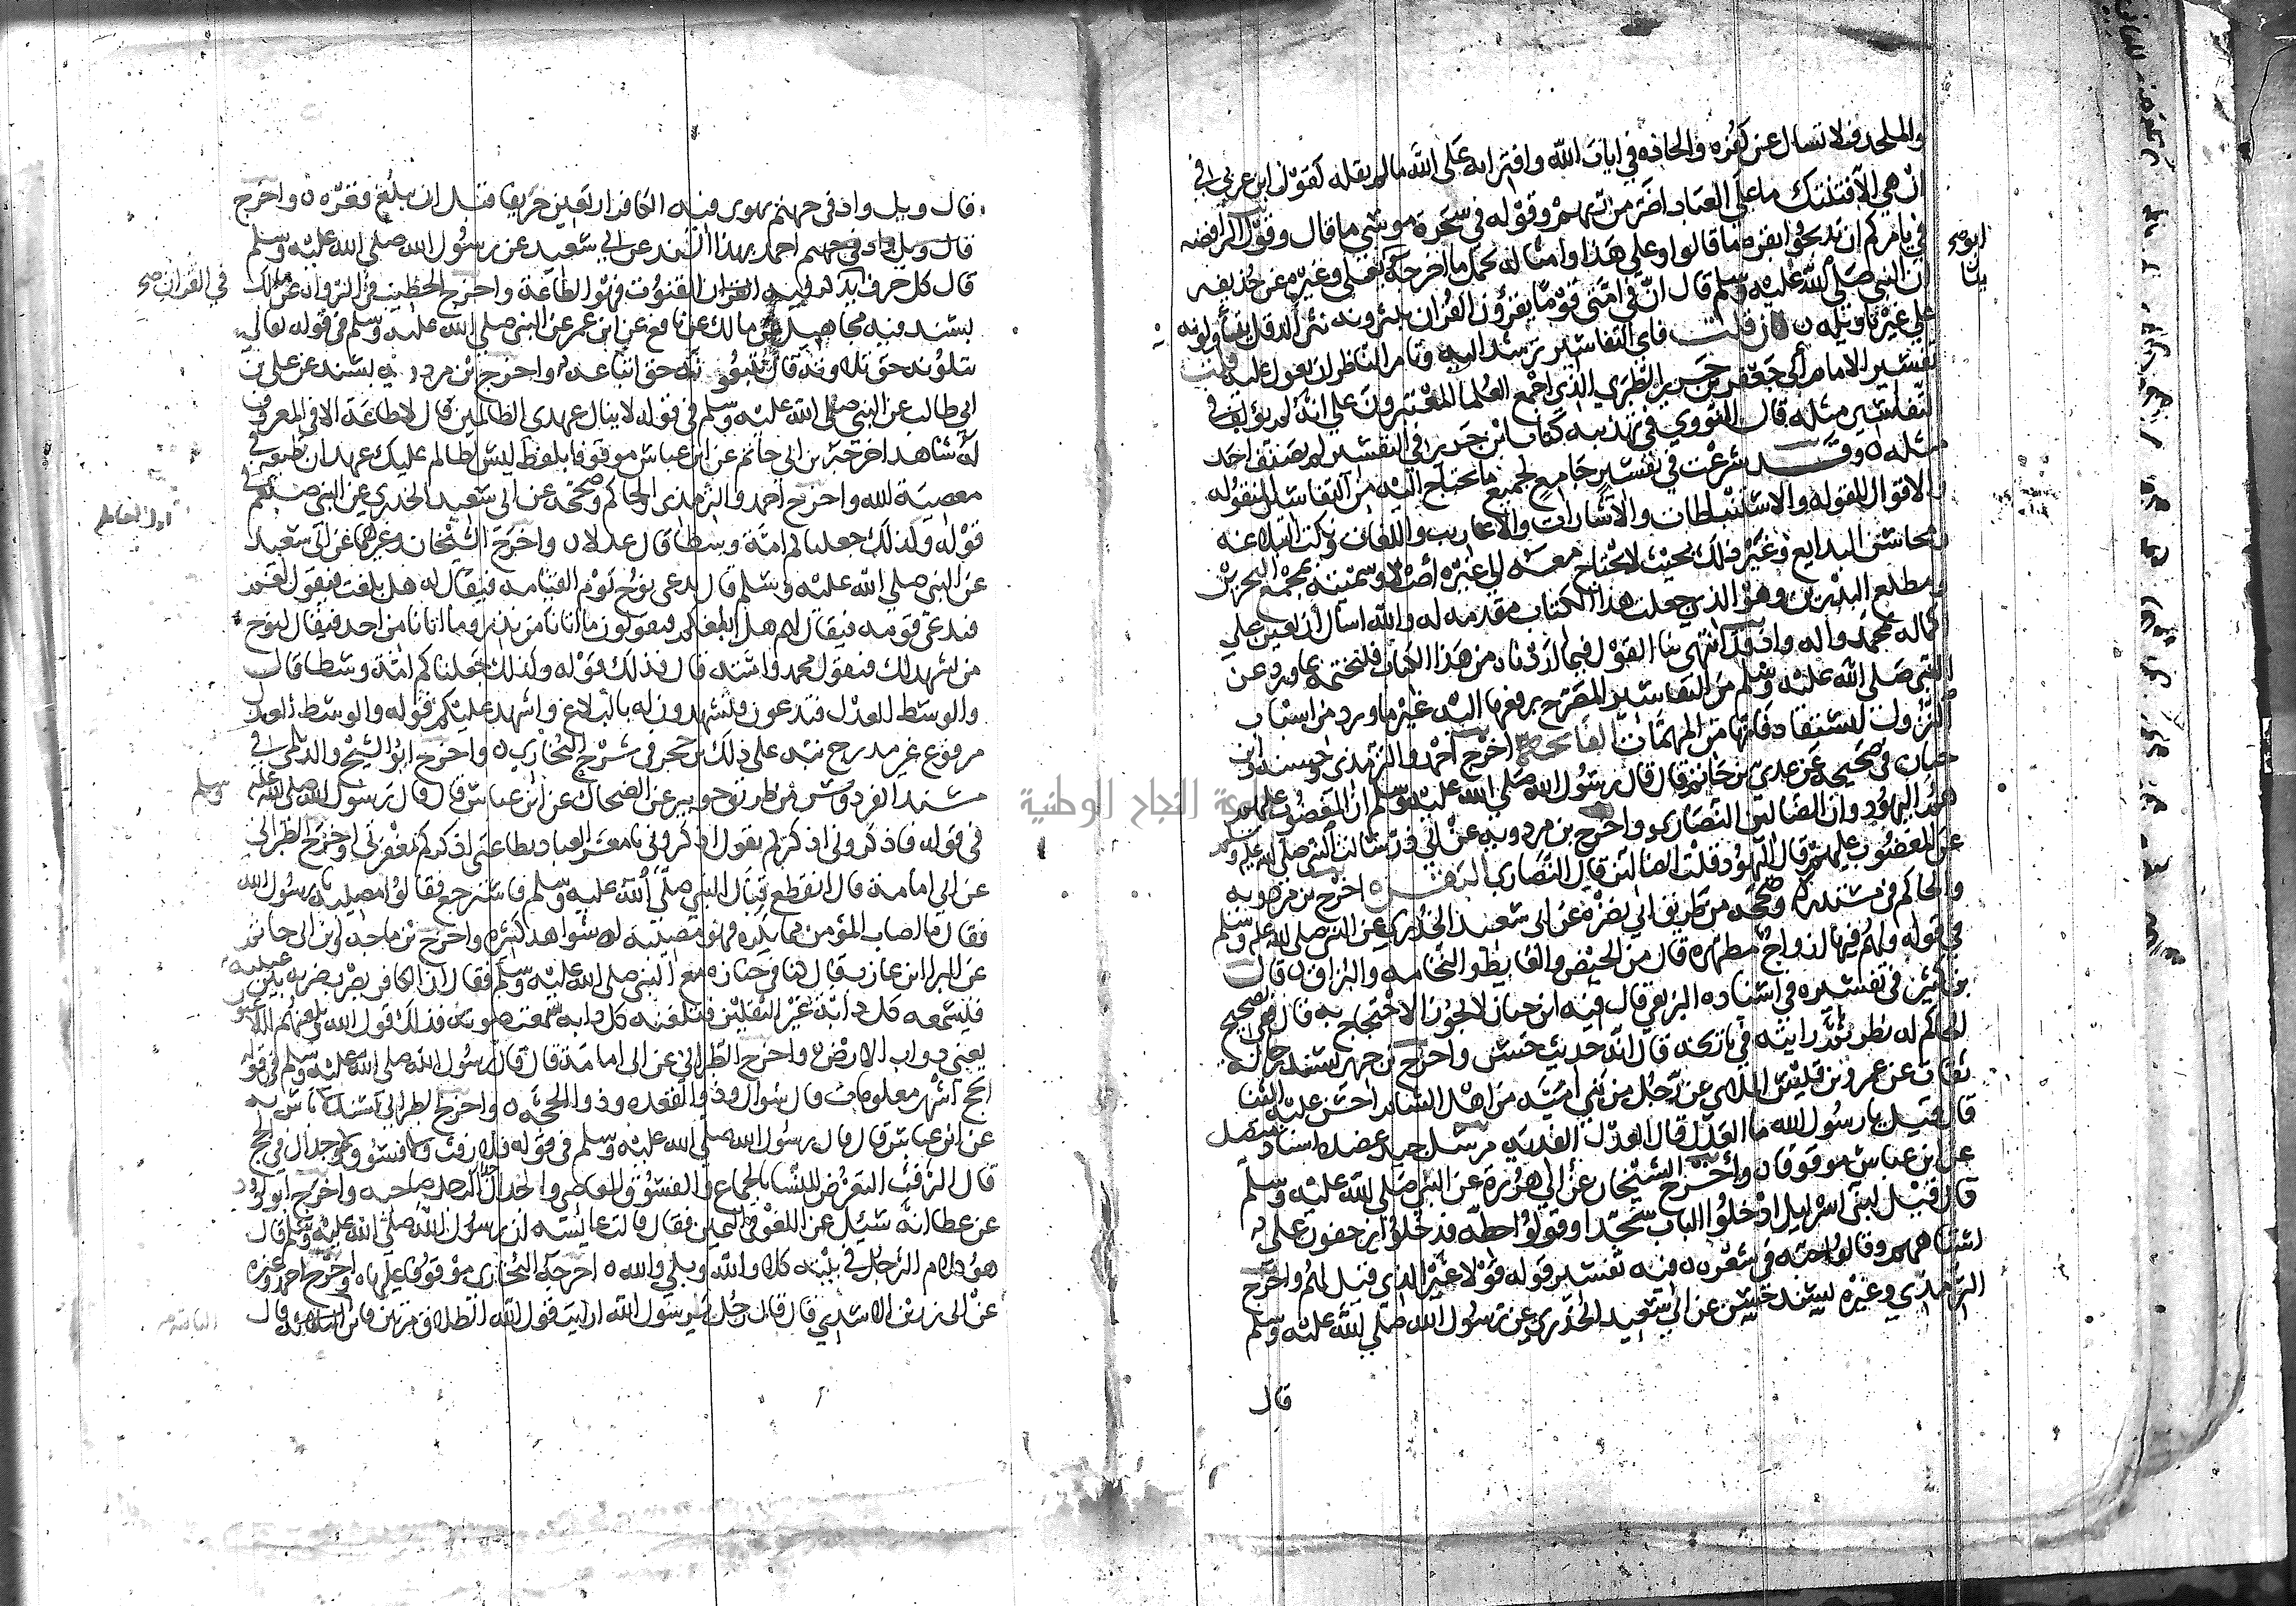 والملحد فلا تسال عن كفره والحاده في ايات الله وافترايه على الله ما لم يقله كقول ابن عربي في
ان هي الا فتنتك ما على العباد اضر من ربهم وقوله في سحرة موسى ما قال وقول الرافضه
في يامركم ان تذبحوا بقره ما قالوا وعلى هذا وامثاله يحمل ما اخرجه ابو يعلى وغيره عن حذيفه
ان النبي صلى الله عليه وسلم قال ان في امتي قوما يقرؤن القران ينثرونه نثر الدقل يتاولونه
على غير تاويله ن فان قلت فاي التفاسير ترشد اليه وتامر الناظر ان يعول عليه قلت
تفسير الامام ابي جعفر بن جرير الطبري الذي اجمع العلما المعتبرون على انه لم يؤلف في
التفاسير مثله قال النووي في تهذيبه كتاب ابن جرير في التفسير لم يصنف احد
مثله ن وقد شرعت في تفسير جامع لجميع ما يحتاج اليه من التفاسير المنقوله
والاقوال المقوله والاستنباطات والاشارات والاعاريب واللغات ونكت البلاغه
ومحاسن البدايع وغير ذلك بحيث لا يحتاج معه الى غيره اصلا وسميته بمجمع البحرين
ومطلع البدرين وهو الذي جعلت هذا الكتاب مقدمه له والله اسال ان يعين على
اكماله بمحمد واله واذ قد انتهى بنا القول فيما اردناه من هذا الكتاب فلنختمه بما ورد عن
النبي صلى الله عليه وسلم من التفاسير المصرح برفعها اليه غير ما ورد من اسباب
النزول لتستفاد فانها من المهمات الفاتحه اخرج احمد والترمذي وحسنه وابن
حبان في صحيحه عن عدي بن حاتم قال قال رسول الله صلى الله عليه وسلم ان المغضوب عليهم
هم اليهود وان الضالين النصارى واخرج بن مردويه عن ابي ذر سالت النبي صلى الله عليه وسلم
عن المغضوب عليهم قال اليهود قلت الضالين قال النصارى البقره اخرج بن مردويه
والحاكم في مستدركه وصححه من طريق ابي نضرة عن ابي سعيد الخدري عن النبي صلى الله عليه وسلم
في قوله ولهم فيها ازواج مطهره قال من الحيض والغايط والنخامه والبزاق ن قال
بن كثير في تفسيره في اسناده البزيعي قال فيه ابن حبان لا يجوز الاحتجاج به قال ففي تصحيح
الحاكم له نظر ثم رايته في تاريخه قال انه حديث حسن واخرج بن جرير بسند رجاله
ثقات عن عمرو بن قيس الملاي عن رجل من بني اميه من اهل الشام احسن عليه الثنا
قال قيل يا رسول الله ما العدل قال العدل الفديه مرسل جيد عضده اسناد متصل
عن بن عباس موقوفا ن واخرج الشيخان عن ابي هريرة عن النبي صلى الله عليه وسلم
قال قيل لبني اسرايل ادخلوا الباب سجدا وقولوا حطه فدخلوا يزحفون على
استاههم وقالوا حبه في شعره ن فيه تفسير قوله قولا غير الذي قيل لهم واخرج
الترمذي وغيره بسند حسن عن ابي سعيد الخدري عن رسول الله صلى الله عليه وسلم
قال
ابو صح
قال ويل واد في جهنم يهوي فيه الكافر اربعين خريفا قبل ان يبلغ قعره ن واخرج
احمد بهذا السند عن ابي سعيد عن رسول الله صلى الله عليه وسلم
قال كل حرف القنوت فهو الطاعة واخرج الخطيب في الرواه عن مالك
في القران صح
بسند فيه مجاهيل عن مالك عن نافع عن ابن عمر عن النبي صلى الله عليه وسلم في قوله تعالى
يتلونه حق تلاوته قال يتبعونه حق اتباعه واخرج ابن مردويه بسند عن علي بن
ابي طالب عن النبي صلى الله عليه وسلم في قوله لا ينال عهدي الظالمين قال لا طاعة الا في المعروف
له شاهد اخرجه بن ابي حاتم عن ابن عباس موقوفا بلفظ ليس لظالم عليك عهد ان تطيعه في
معصية الله واخرج احمد والترمذي والحاكم وصححه عن ابي سعيد الخدري عن النبي صلعم في
قوله وكذلك جعلناكم امة وسطا قال عدلا ن واخرج الشيخان وغيرهما عن ابي سعيد
عن النبي صلى الله عليه وسلم قال يدعى نوح يوم القيامه فيقال له هل بلغت فيقول نعم
فيدعى قومه فيقال لهم هل بلغكم فيقولون ما اتانا من نذير وما اتانا من احد فيقال لنوح
من يشهد لك فيقول محمد وامته قال فذلك قوله وكذلك جعلناكم امة وسطا قال
والوسط العدل فتدعون فتشهدون له بالبلاغ واشهد عليكم قوله والوسط العدل
مرفوع غير مدرج نبه على ذلك بن حجر في شرح البخاري ن واخرج ابو الشيخ والديلمي في
مسند الفردوس من طريق جويبر عن الضحاك عن ابن عباس قال قال رسول الله صلى الله عليه
وسلم
في قوله فاذكروني اذكركم يقول اذكروني يا معشر العباد بطاعتي اذكركم بمغفرتي واخرج الطبراني
عن ابي امامة قال انقطع قبال النبي صلى الله عليه وسلم فاسترجع فقالوا مصيبه يا رسول الله
فقال ما اصاب المؤمن مما يكره فهو مصيبة له شواهد كثيره واخرج بن ماجه وابن ابي حاتم
عن البرا بن عازب قال كنا في جنازه مع النبي صلى الله عليه وسلم فقال ان الكافر يضرب ضربه بين عينيه
فيسمعه كل دابة غير الثقلين فتلعنه كل دابه سمعت صوته فذلك قول الله ويلعنهم اللاعنون
يعني دواب الارض ن واخرج الطبراني عن ابي امامة قال قال رسول الله صلى الله عليه وسلم في قوله
الحج اشهر معلومات قال شوال وذو القعده وذو الحجه ن واخرج الطبراني بسند لا باس به
عن ابن عباس قال قال رسول الله صلى الله عليه وسلم في قوله فلا رفث ولا فسوق ولا جدال في الحج
قال الرفث التعرض للنسا بالجماع والفسوق المعاصي والجدال جدال الرجل صاحبه واخرج ابو داود
عن عطا انه سئل عن اللغو في اليمين فقال قالت عايشه ان رسول الله صلى الله عليه وسلم قال
هو كلام الرجل في بيته كلا والله وبلى والله ن اخرجه البخاري موقوفا عليها ن واخرج احمد وغيره
عن ابي رزين الاسدي قال قال رجل يا رسول الله ارايت قول الله الطلاق مرتان فاين الثالثه قال